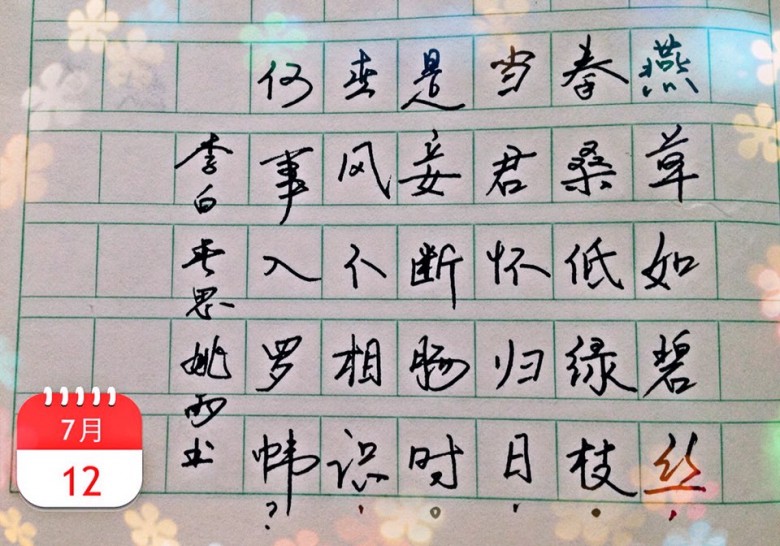 燕草如碧丝，
秦桑低绿枝。
当君怀归日，
是妾断肠时。
春风不相识，
何事入罗帏？
李白春思姚书
7月
12